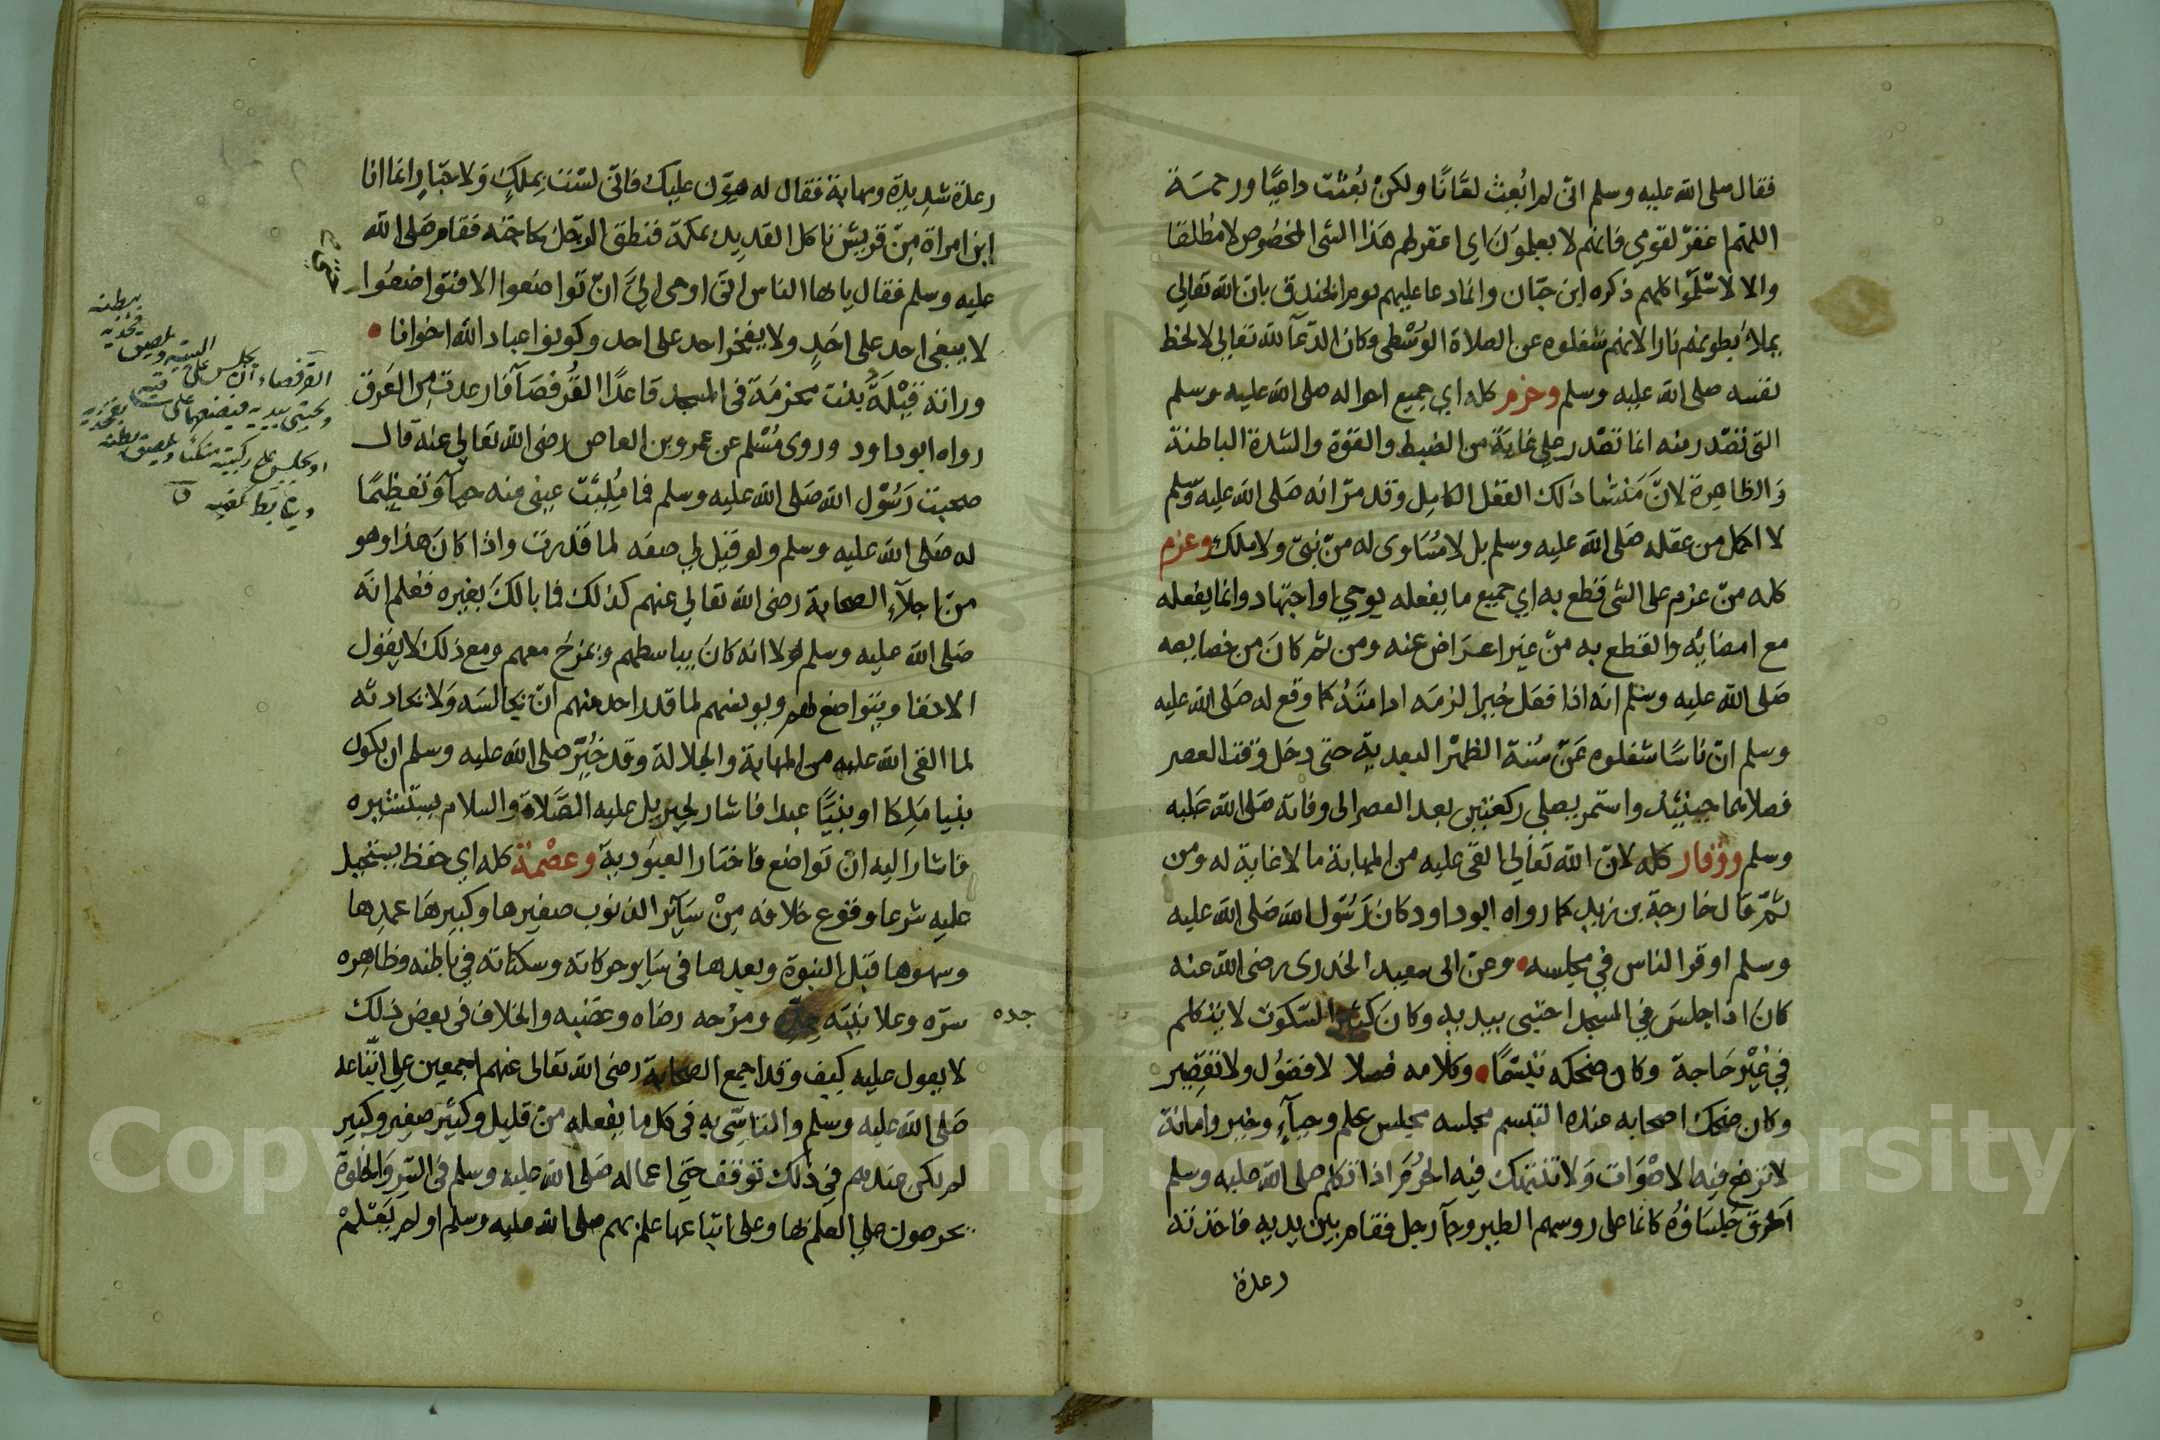 فقال صلى الله عليه وسلم انى لم ابعث لعّانًا ولكن بُعثت داعيًا ورحمة
اللهم اغفر لقومي فانهم لا يعلمون اي اغفر لهم هذا الشي المخصوص لا مطلقا
والا لاسْلَمُوا كلهم ذكره ابن حبان وانما دعا عليهم يوم الخندق بان الله تعالى
يملا بطونهم نارا لانهم شغلوه عن الصلاة الوُسْطى وكان الدعآ لله تعالى لا لحظ
نفسه صلى الله عليه وسلم وحزم كله اي جميع احواله صلى الله عليه وسلم
التى تصْدر منه انما تصْدر على غاية من الضبط والقوة والشدة الباطنة
والظاهرة لانّ مَنشا ذلك العقل الكامل وقد مرّ انه صَلى الله عليه وسلم
لا اكمل من عقله صَلى الله عليه وسلم بل لا مُسَاوى له من نبىّ ولا ملك وعزم
كله من عزم على الشى قطع به اي جميع ما يفعله بوحي او اجتهاد وانما يفعله
مع امضايه والقطع به من غير اعراض عنه ومن ثم كان من خصايصه
صَلى الله عليه وسلم انه اذا فعَل خيرا لزمه ادامتَهُ كما وقع له صَلى الله عليه
وسلم انّ ناسًا شغلوه عَنْ سُنة الظهر البعدية حتى دخل وقت العصر
فصلاهما حينئذ واستمر يصلى ركعتين بعد العصر الى وفاته صَلى الله عليه
وسلم ووقار كله لانّ الله تعَالى القى عليه من المهابة ما لا غاية له ومن
ثمّ قال خارجة بن زيد كما رواه ابوداود كان رَسُول الله صَلى الله عليه
وسلم اوقر الناس في مجلسه وعن ابى سعيد الخدرى رضى الله عنه
كان اذا جلسَ في المسْجد احتبى بيديه وكان كثير السّكوت لا يتكلم
في غيْر حَاجة وكان ضحكه تبسّمًا وكلامه فصلا لا فضُول ولا تقصير
وكان ضحك اصحابه عنده التبسم مجلسه مجلس علم وحيآء وخير وامانة
لا ترفع فيه الاصْوَات وَلا تنتهك فيه الحُرُم اذا تكلم صلى الله عليه وسلم
اَطرق جُلسَاؤُه كانما على روسهم الطير وجآ رجل فقام بين يديه فاخذته
رعدة
رعدة شديدة ومهابة فقال له هوّن عليك فانى لسْت بملكٍ وَلا جبّارٍ انما انا
ابن امراة منْ قريش تاكل القديد بمكة فنطق الرجل بحاجته فقام صَلى الله
عليه وسلم فقال يايها الناس انى اوحى اليَّ انْ تواضعوا الا فتواضعُوا
لا يبغى احد على احَدٍ ولا يفخر احد على احد وكونوا عباد الله اخوانا
وراته قيْلةُ بنت مخرمَة فى المسجد قاعدًا القُرفصَآ فارعدت مِن الفَرق
رواه ابوداود وروى مُسْلم عن عمرو بن العاص رضى الله تعَالى عنه قال
صحبت رَسُوْل الله صَلى الله عليه وسلم فما مُلِئت عينى منه حيآ وَتعْظيمًا
له صَلى الله عليه وسلم ولو قيْل لي صفه لما قدرت واذا كانَ هذا وهو
من اجلآء الصحابة رضى الله تعَالى عنهم كذلك فما بالكَ بغيره فعُلم انّه
صَلى الله عليه وسلم لولا انه كانَ يباسطهم ويمزحُ معهم ومع ذلك لا يقول
الا حقا ويتواضع لهم ويونسهم لما قدر احد منهم انْ يجالسَه وَلا يحادثه
لما القى الله عليه من المهابة والجلالة وقد خُيّر صلى الله عليه وسلم ان يكون
نبيا مَلكا او نبيًّا عبدا فاشار لجبريل عليه الصّلاة والسلام يستشيره
فاشار اليه انْ تواضع فاختار العبُودية وعصْمة كله اي حفظ يستحيل
عليه شرعا وقوع خلافه مِنْ سَآير الذنوب صغيرها وكبيرهَا عمدِها
وسهوها قبْل النبوة وبعدها فى سَاير حركاته وسكناته في باطنه وظاهِره
سرّه وعلانيته جِدّه ومزْحه رضاه وغضبه والخلاف فى بعض ذلك
جده
لا يعول عليه كيف وقد اجمع الصحابة رضى الله تعالى عنهم اجمعين على اتّباعه
صَلى الله عليه وسلم والتاسّى به فى كل ما يفعله منْ قليل وكثير صغير وكبير
لم يكن عندهم في ذلك توقف حتى اعماله صَلى الله عليه وسلم فى السّر وَالخلوة
يحرصون على العلم بها وعلى اتباعها علم بهم صلى الله عليه وسلم او لم يَعْلمْ
القرفصاء ان يجلس على اليتيه ويلصق فخذيه ببطنه
ويحتبى بيديه فيضعهما على
او يجلس على ركبتيه متكئا ويلصق بطنه بفخذيه
ويتابط كفيه ق